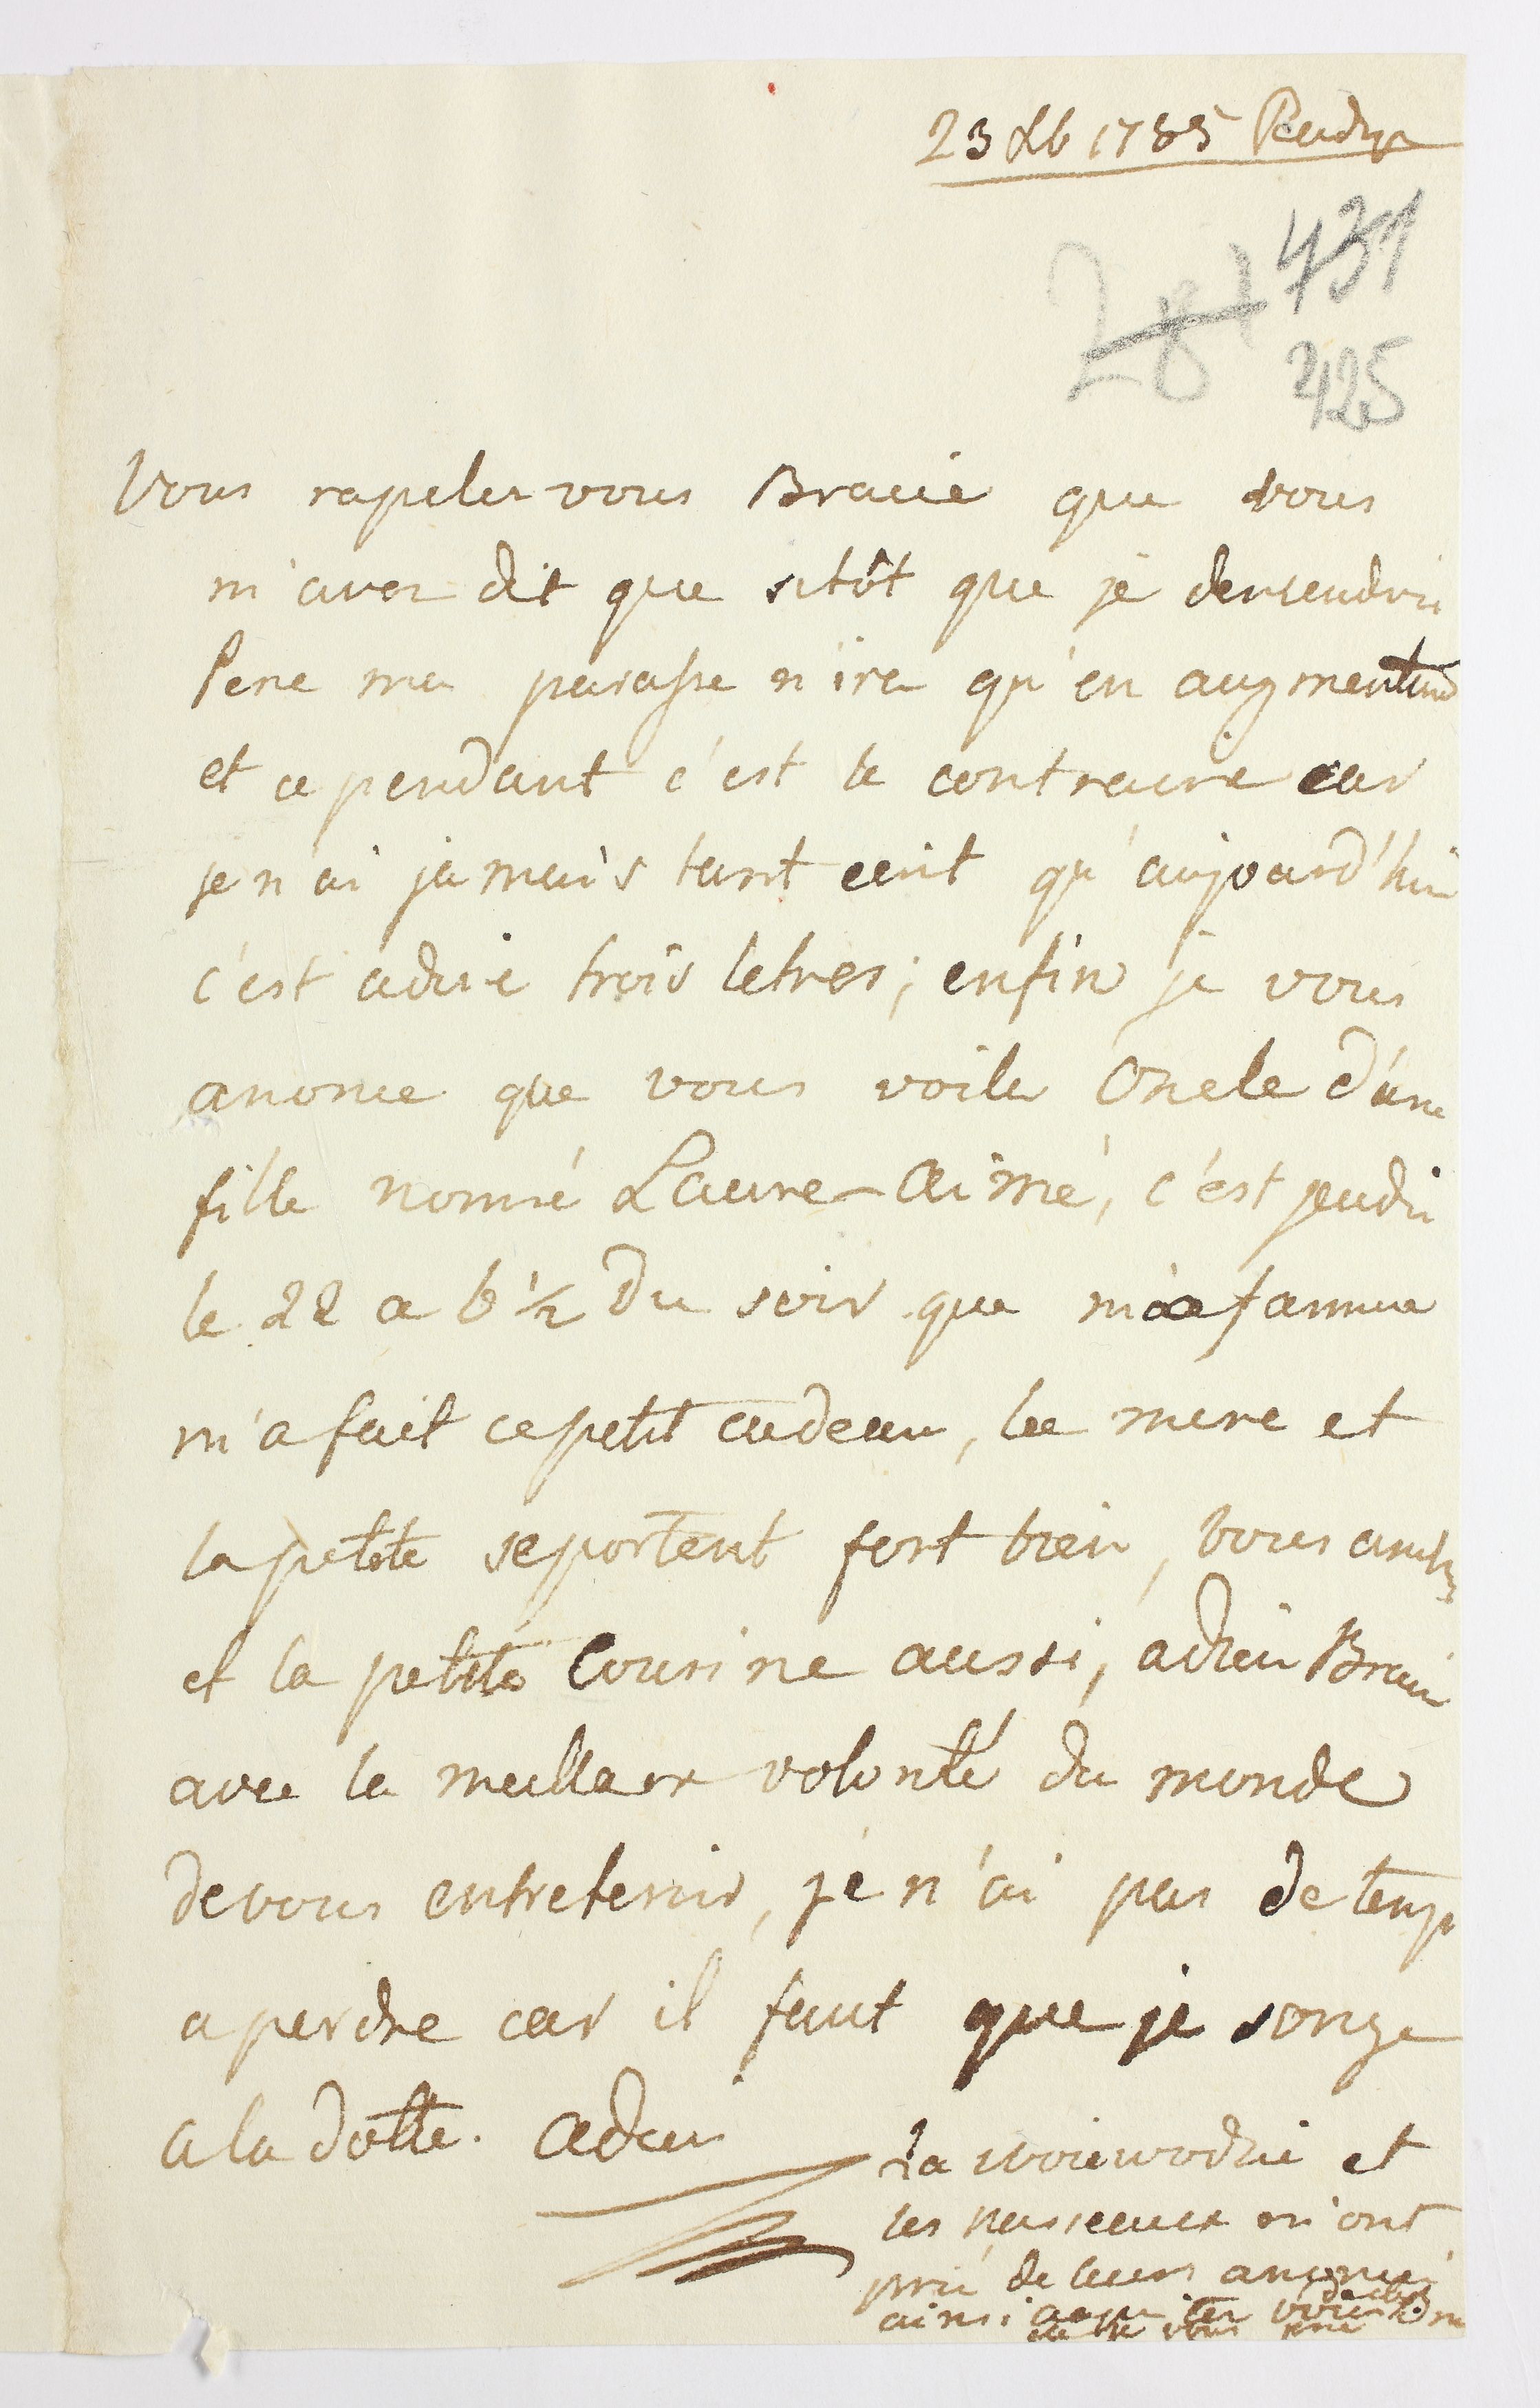 23 Xb 1785
431
281
425
Vous rapeler vous Bracie que vous
m'avez dit que sitôt que je deviendrai
Pere ma paresse n'ira qu'en augmentand
et cependant c'est le contraire car
je n'ai jamais tant ecrit qu'aujourd'hui
c'est adire trois letres; enfin je vous
anonce que vous voila Oncle d'une
fille nomé Laure-Aimé, c'est jeudi
le 22 a 6 ½ du soir que ma famme
m'a fait ce petit cadeau, la mere et
la petite se portent fort bien, vous
et la petite Cousine aussi, adieu Braci
avec la meillaer volonté du monde
de vous entretenir, je n'ai pas de temp
a perdre car il faut que je songe
a la dotte. adieu
la woiewodzie et
les m'ont
prié de leurs
ainsi vous
vous